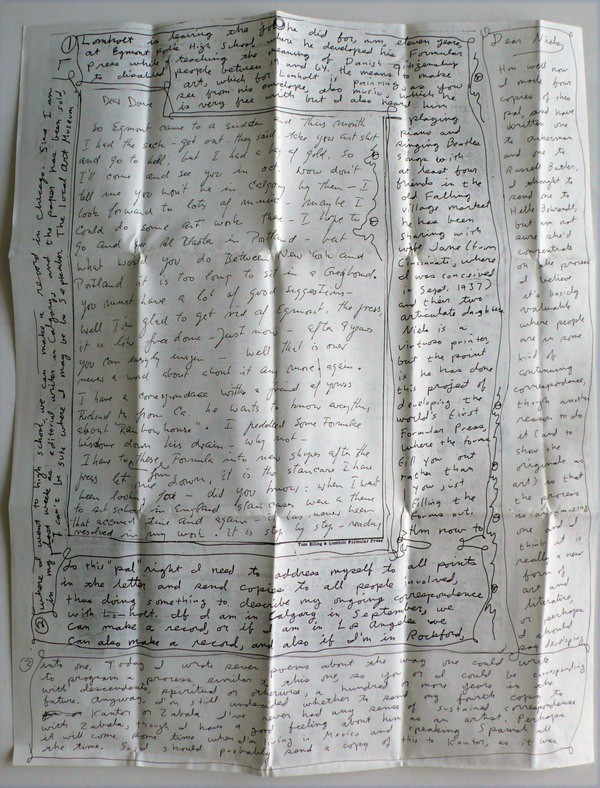 ① Lomholt is leaving the job he did for, mm, eleven years,
at Egmont Folk High School where he developed his Formular
press while teaching the meaning of Danish citizenship
to disabled people between in and by the means to make
art, which for Lomholt is painting as you
see from his envelope, also music, which he
is very free with but I also heard him
playing
piano and
singing Beatles
songs with
at least four
friends in the
old Falling
village market
he has been
sharing with
wife Jane (from
Cincinnati, where
I was conceived
in Sept. 1937)
and their two
articulate daughters
Niels is a
virtuoso printer,
but the point
is he has done
this project of
developing the
world's first
Formular Press,
where the forms
fill you out
rather than
you just
filling the
forms out.
Am now to
Dear Dave
So Egmont came to a sudden end this month
I had the sack - get out - they said - take your art shit
and go to hell, but I had a bag of gold. So
I'll come and see you in oct. Now don't
tell me you won't be in Calgary by then - I
look forward to lots of music - maybe I
could do some art work there - I hope to
go and see Al Vista in Portland - but
what would you do Between New York and
Portland it is too long to sit in a Greyhound.
you must have a lot of good suggestions -
Well I'm glad to get rid of Egmont. the press,
it is like free done - Just now - after 9 years
you can easyly imagen - well that is over
never a word about about it any more again.
I have a correspondance with a friend of yours
Richard M. from Ca. he wants to know everything
about "Rainbow house". I pedaled some Formular
down his drain - why not -
I have tog these Formula into new shapes after the
press let me down, it is the staircare I have
been looking for - did you know: when I went
to art school in England staircases were a theme
that accured time and again - was never been
resolved in my work. it is step by step - really
Tom Elling & Lomholt Formular Press
So this "pal right I need to address myself to all points
in the letter and send copies to all people involved,
thus doing something to describe my ongoing correspondence
with Lomholt. If I am in Calgary in September, we
can make a record, or if I am in Los Angeles we
can also make a record, and also if I'm in Rockford,
② where I went to high school, we can make a record in Chicago. Since I am
in my last week as editorial writer in Calgary, and the paper has been sold,
I can't be sure where I may be by September. The local Art Museum
③ into one. Today I wrote seven poems about the way one could write
to program a process similar to this one, so you or I could be corresponding
with descendants, spiritual or otherwise, a hundred or more years in the
future. Anyway, I'm still undecided whether to send my fourth copy to
Kantor or Zabala. I've never had any sense of sustained correspondence
with Zabala, though I have a good feeling about him as an artist. Perhaps
it will come some time when I'm living in Mexico and speaking Spanish all
the time. So I should probably send a copy of this to Kantor, as it was
Dear Niels
How well now
I made four
copies of this
pal, and have
written one
to Ackerman
and one to
Russell Butler.
I thought to
send one to
but am not
sure she'd
concentrate
on the process
I believe
it's basicly
valuable
where people
are in some
kind of
continuing
correspondence,
though another
reason to do
it (and to
show the
originals as
art) is that
the process
is an amazing
one and I
think it is
really a new
form of
art and
literature,
or perhaps
I should
say developing